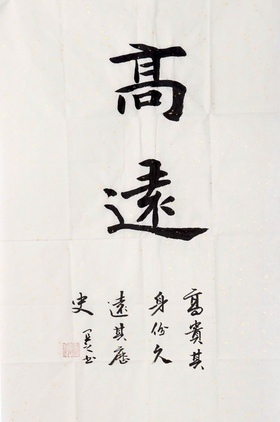 高遠
高貴其
身份久
遠其歷
史